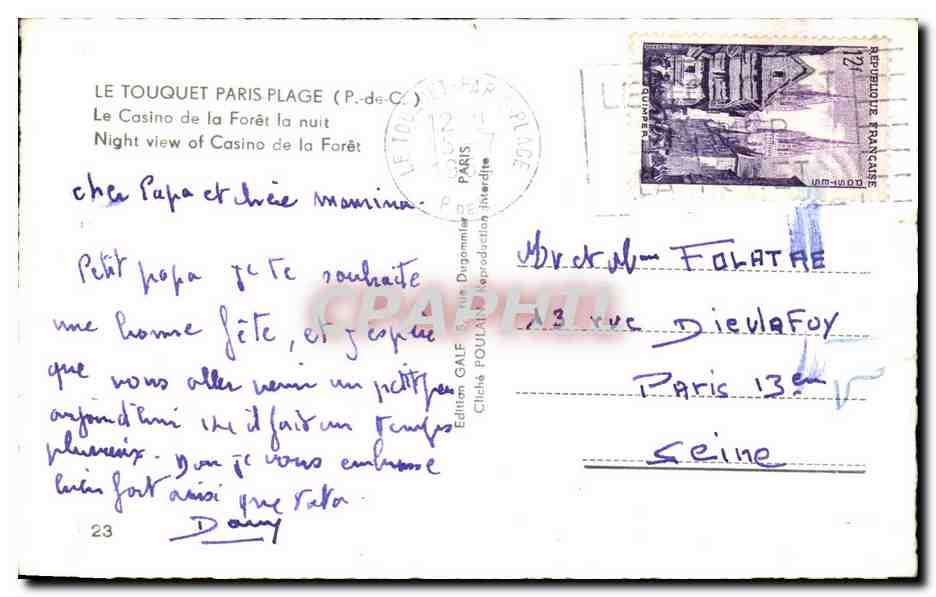 LE TOUQUET PARIS-PLAGE (P.-de-C.)
Le Casino de la Forêt la nuit
Night view of Casino de la Forêt
cher Papa et chérie mamina.
Petit papa je te souhaite
une bonne fête, et j'espère
que vous allez venir un petit peu
aujourd'hui ici il fait un temps
pluvieux. Bon je vous embrasse
bien fort ainsi que tata.
Dany
23
Edition GALF 5, rue Dugommier PARIS
Cliché POULAIN Reproduction interdite
LE TOUQUET-PARIS-PLAGE
P. DE
REPUBLIQUE FRANÇAISE
12f
POSTES
QUIMPER
Mr et Mme FOLATRE
13 rue DIEULAFOY
PARIS 13em
Seine
CPAPHIL